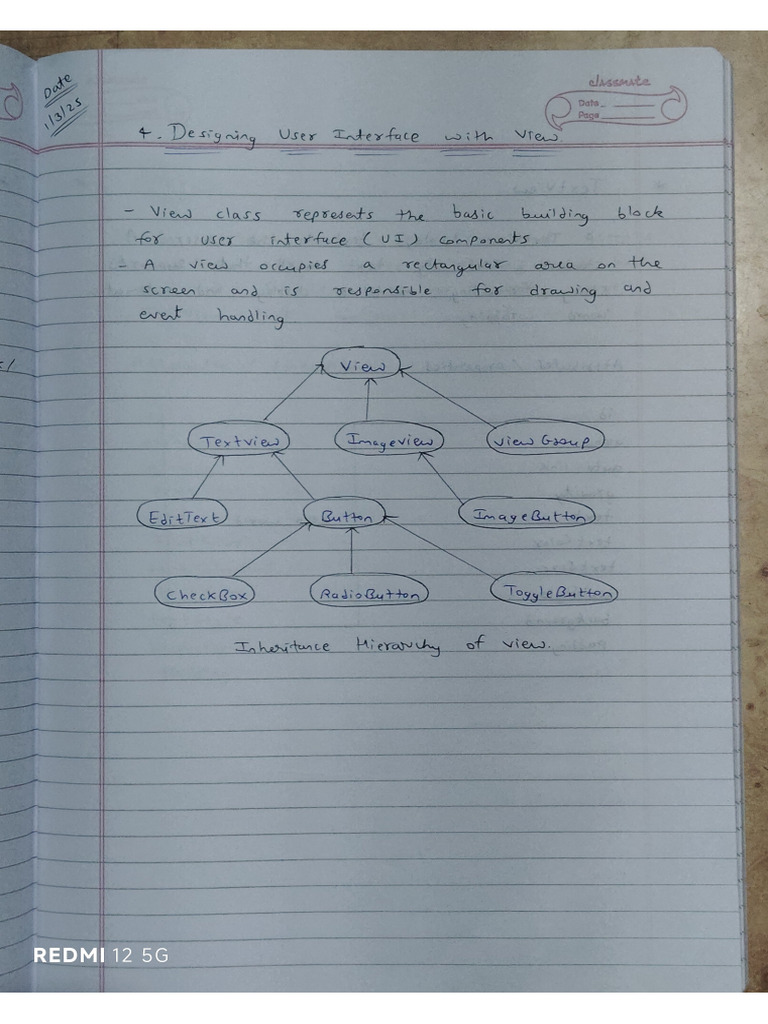 Date
1/3/25
classmate
Date
Page
4. Designing User Interface with View
- View class represents the basic building block
for user interface (UI) components
- A view occupies a rectangular area on the
screen and is responsible for drawing and
event handling
View
Textview Imageview View Group
EditText Button ImageButton
CheckBox RadioButton ToggleButton
Inheritance Hierarchy of view.
REDMI 12 5G